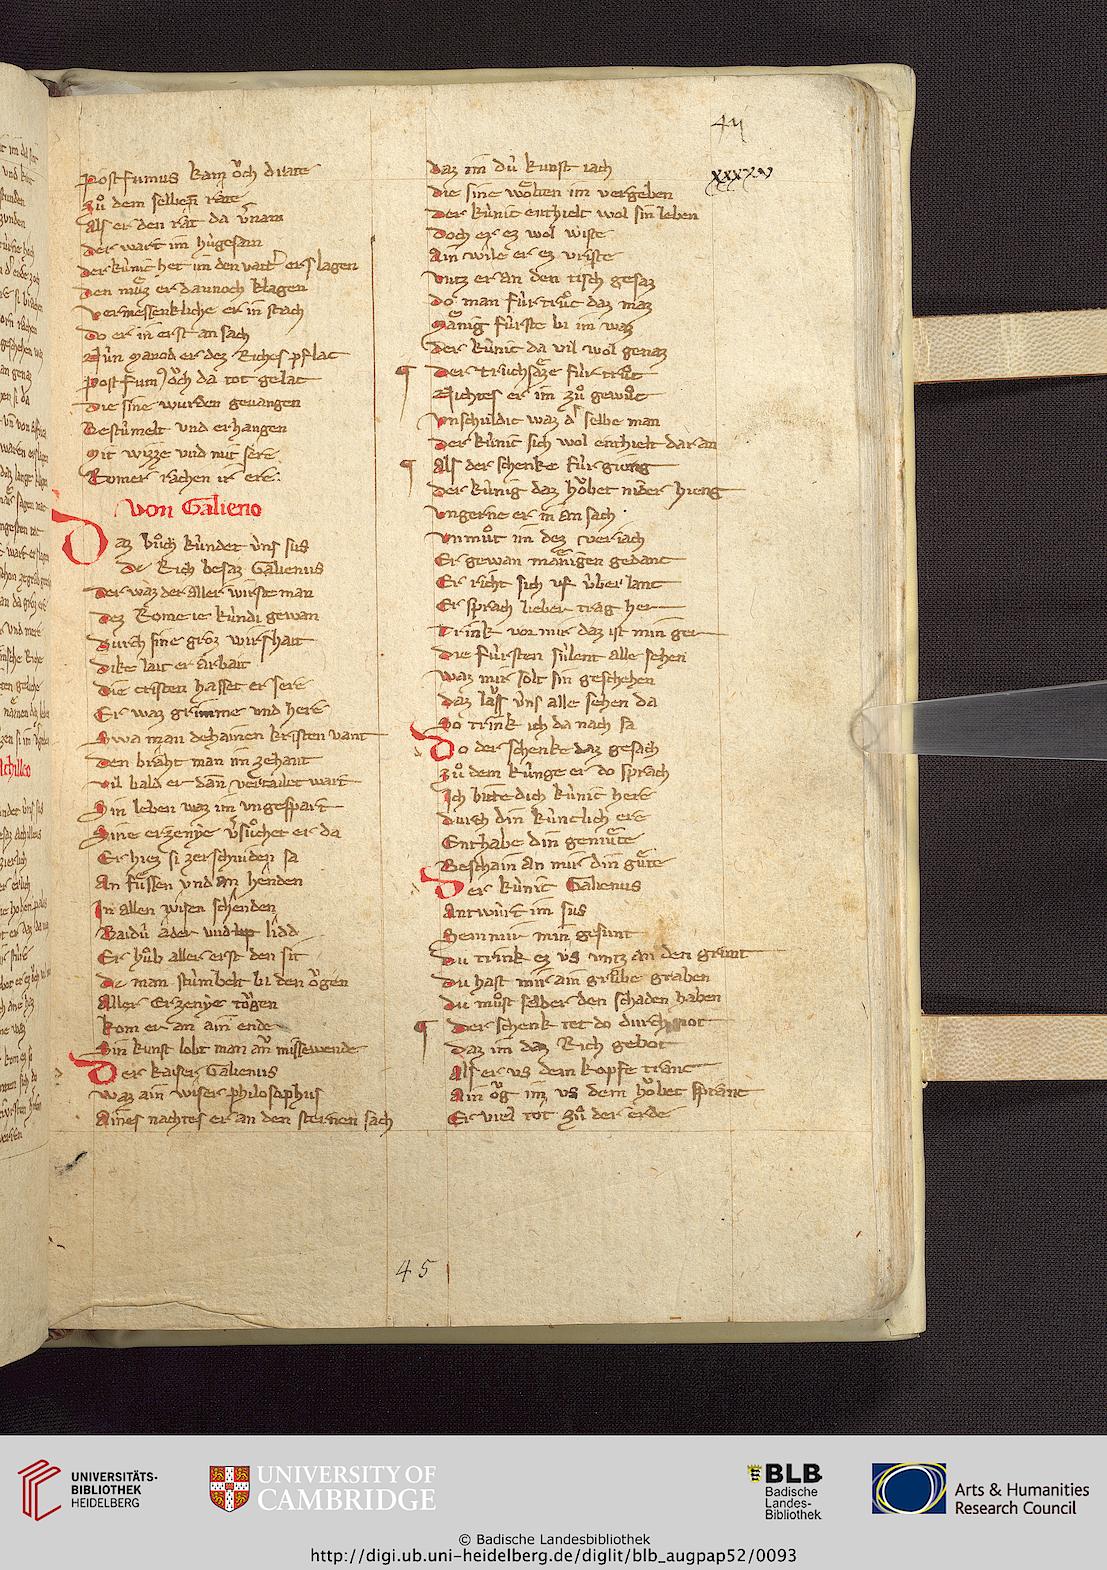 44
xxxxv
Postfumus kam oͤch drate
Zuͦ dem selben rate
Als er den rat da v̾nam
Der wart im hùgesam
Der kùnic het im den vatt̾ erslagen
Den muͦz er dannoch klagen
Vermessenkliche er in stach
Do er in erst an sach
Nùn manod er dez Riches pflac
Postfum⁹ oͤch da tot gelac
Die sine wurden gevangen
Bestùmelt vnd erhangen
Mit wizze vnd mit sere
Romer rachen ir ere
von Galieno
Daz buͦch kùndet vns sus
De Rich besaz Galienus
Der waz der aller wirste man
Dez Rome ie kùndi gewan
Durch sine groz wirshait
Dike lait er arbait
Die cristen hasset er sere
Er waz grimme vnd here
Swa man dehainen kristen vant
Den braht man im zehant
Vil bald er dan̄ vertailet wart
Sin leben waz im vngespart
Sine erzenye v̾suͦchet er da
Er hiez si zerschniden sa
An fuͤssen vnd an henden
In allen wisen schenden
Baidù ader vnd lidd
Er huͦb aller erst den sit
De man stùmbelt bi den oͤgen
Aller Erzenye toͤgen
Kom er an ain ende
Sin kunst lobt man an̄ missewende
Der kaiser Galienus
Waz ain wiser philosophus
Aines nachtes er an den sternen sach
Daz im dù kunst iach
Die sine woͤlten im vergeben
Der kùnic enthielt wol sin leben
Doch er ez wol wiste
Ain wile er ez vriste
Vntz er an den tisch gesaz
Do man fùr truͦc daz maz
Maͤnig fùrste bi im waz
Der kùnic da vil wol genaz
Der truchsaͤze fùr truͦc
Nichtes er im zuͦ gewuͦc
Vnschuldic waz d̾ selbe man
Der kùnic sich wol enthielt dar an
Als der schenke fùr gieng
Der kùnig daz hoͤbet nider hieng
Vngerne er in an sach
Vnmuͦt im dez veriach
Er gewan maͤnigen gedanc
Er richt sich uf ùber lanc
Er sprach lieber trag her
Trink vor mir daz ist min ger
Die fùrsten sùlent alle sehen
Waz mir solt sin geschehen
Daz lass vns alle sehen da
So trink ich da nach sa
Do der schenke daz gesach
Zuͦ dem kùnge er do sprach
Ich bitte dich kùnic here
Durch din kùnclich ere
Enthabe din gemuͤte
Beschain an mir din guͤte
Der kùnic Galienus
Antwùrt im sus
Sem mir min gesunt
Du trink ez vs vntz an den grunt
Du hast mir ain gruͦbe graben
Du muͦst selber den schaden haben
Der schenk tet do durch not
Daz im daz Rich gebot
Als er vs dem kopfe tranc
Ain oͤg im vs dem hoͤbet spranc
Er viel tot zuͦ der erde
45
UNIVERSITÄTS-
BIBLIOTHEK
HEIDELBERG
UNIVERSITY OF
CAMBRIDGE
BLB
Badische
Landes-
Bibliothek
Arts & Humanities
Research Council
© Badische Landesbibliothek
http://digi.ub.uni-heidelberg.de/diglit/blb_augpap52/0093